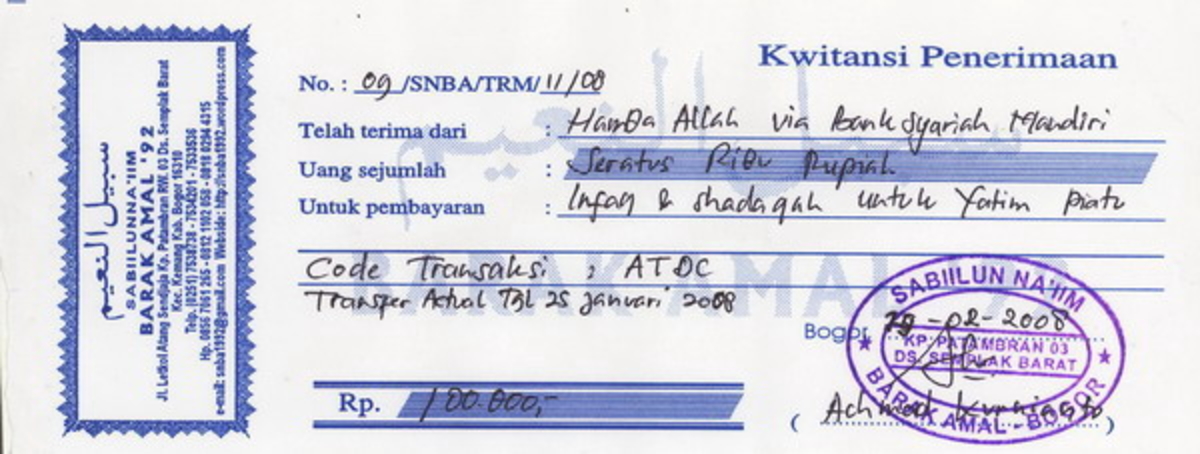 سبيل النعيم
SABIILUNNA'IIM
BARAK AMAL '92
Jl. Letkol Atang Sendjaja Kp. Patambran RW. 03 Ds. Semplak Barat
Kec. Kemang Kab. Bogor 16310
Telp. (0251) 7538738 - 7534201 - 7533536
Hp. 0856 7061 265 - 0812 1102 058 - 0818 0294 4315
e-mail: snba1992@gmail.com Webside: http://snba1992.wordpress.com
Kwitansi Penerimaan
No. : 09 /SNBA/TRM/ 11/08
Telah terima dari : Hamba Allah via Bank Syariah Mandiri
Uang sejumlah : Seratus Ribu Rupiah
Untuk pembayaran : Infaq & shadaqah untuk Yatim piatu
Code Transaksi : ATDC
Transper Actual Tgl 25 januari 2008
سبيل النعيم
BARAK AMAL '92
Bogor, -02-2008
SABIILUN NA'IIM
KP. PATAMBRAN 03
DS. SEMPLAK BARAT
BARAK AMAL - BOGOR
Rp. 100.000,-
( Achmad )